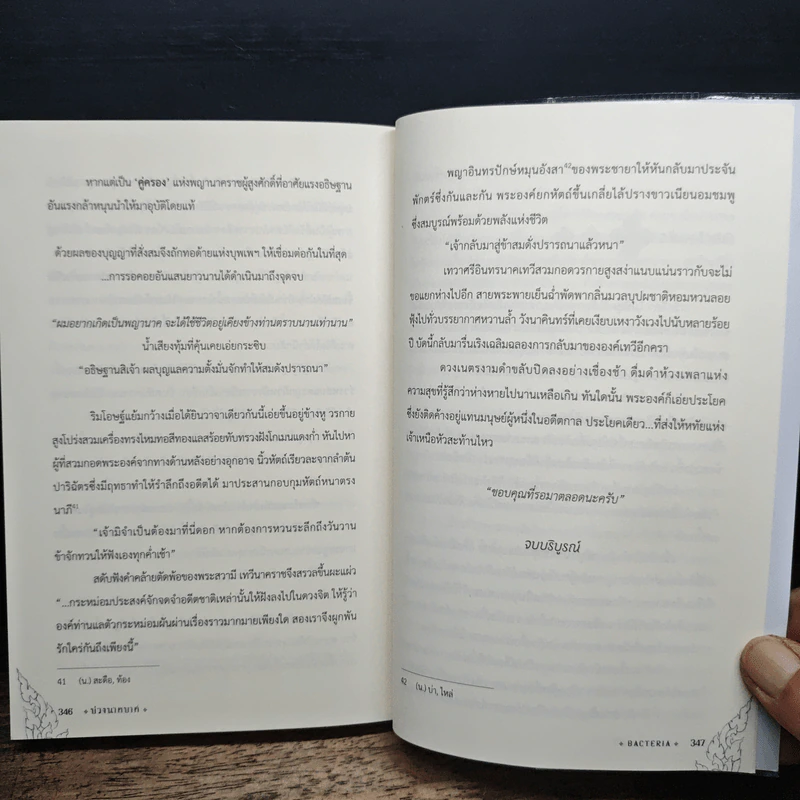 หากแต่เป็น ‘คู่ครอง’ แห่งพญานาคราชผู้สูงศักดิ์ที่อาศัยแรงอธิษฐาน
อันแรงกล้าหนุนนำให้มาอุบัติโดยแท้
ด้วยผลของบุญญาที่สั่งสมจึงถักทอด้ายแห่งบุพเพฯ ให้เชื่อมต่อกันในที่สุด
...การรอคอยอันแสนยาวนานได้ดำเนินมาถึงจุดจบ
“ผมอยากเกิดเป็นพญานาค จะได้ใช้ชีวิตอยู่เคียงข้างท่านตราบนานเท่านาน”
น้ำเสียงทุ้มที่คุ้นเคยเอ่ยกระซิบ
“อธิษฐานสิเจ้า ผลบุญแลความตั้งมั่นจักทำให้สมดังปรารถนา”
ริมโอษฐ์แย้มกว้างเมื่อได้ยินวาจาเดียวกันนี้เอ่ยขึ้นอยู่ข้างหู วรกาย
สูงโปร่งสวมเครื่องทรงไหมทอสีทองแลสร้อยทับทรวงฝังโกเมนแดงก่ำ หันไปหา
ผู้ที่สวมกอดพระองค์จากทางด้านหลังอย่างอุกอาจ นิ้วหัตถ์เรียวละจากลำต้น
ปาริฉัตรซึ่งมีฤทธาทำให้รำลึกถึงอดีตได้ มาประสานกอบกุมหัตถ์หนาตรง
นาภี⁴¹
“เจ้ามิจำเป็นต้องมาที่นี่ดอก หากต้องการหวนระลึกถึงวันวาน
ข้าจักทวนให้ฟังเองทุกค่ำเช้า”
สดับฟังคำคล้ายตัดพ้อของพระสวามี เทวีนาคราชจึงสรวลขึ้นผะแผ่ว
“...กระหม่อมประสงค์จักจดจำอดีตชาติเหล่านั้นให้ฝังลงไปในดวงจิต ให้รู้ว่า
องค์ท่านแลตัวกระหม่อมผันผ่านเรื่องราวมากมายเพียงใด สองเราจึงผูกพัน
รักใคร่กันถึงเพียงนี้”
41 (น.) สะดือ, ท้อง
346 บ่วงนาคบาศ
พญาอินทรปักษ์หมุนอังสา⁴²ของพระชายาให้หันกลับมาประจัน
พักตร์ซึ่งกันและกัน พระองค์ยกหัตถ์ขึ้นเกลี่ยไล้ปรางขาวเนียนอมชมพู
ซึ่งสมบูรณ์พร้อมด้วยพลังแห่งชีวิต
“เจ้ากลับมาสู่ข้าสมดั่งปรารถนาแล้วหนา”
เทวาศรีอินทรนาคเทวีสวมกอดวรกายสูงสง่าแนบแน่นราวกับจะไม่
ขอแยกห่างไปอีก สายพระพายเย็นฉ่ำพัดพากลิ่นมวลบุปผชาติหอมหวนลอย
ฟุ้งไปทั่วบรรยากาศหวานล้ำ วังนาคินทร์ที่เคยเงียบเหงาวังเวงไปนับหลายร้อย
ปี บัดนี้กลับมารื่นเริงเฉลิมฉลองการกลับมาขององค์เทวีอีกครา
ดวงเนตรงามดำขลับปิดลงอย่างเชื่องช้า ดื่มด่ำห้วงเพลาแห่ง
ความสุขที่รู้สึกว่าห่างหายไปนานเหลือเกิน ทันใดนั้น พระองค์ก็เอ่ยประโยค
ซึ่งยังติดค้างอยู่แทนมนุษย์ผู้หนึ่งในอดีตกาล ประโยคเดียว...ที่ส่งให้หทัยแห่ง
เจ้าเหนือหัวสะท้านไหว
“ขอบคุณที่รอมาตลอดนะครับ”
จบบริบูรณ์
42 (น.) บ่า, ไหล่
BACTERIA 347